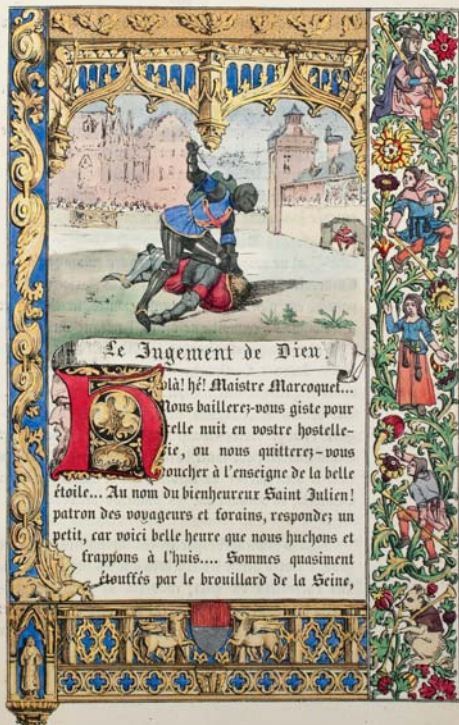 Le Jugement de Dieu.
Holà! hé! Maistre Marcoquet...
Nous baillerez-vous giste pour
celle nuit en vostre hostelle-
rie, ou nous quitterez-vous
coucher à l'enseigne de la belle
étoile... Au nom du bienheureux Saint Julien!
patron des voyageurs et forains, respondez un
petit, car voici belle heure que nous huchons et
frappons à l'huis.... Sommes quasiment
étouffés par le brouillard de la Seine,